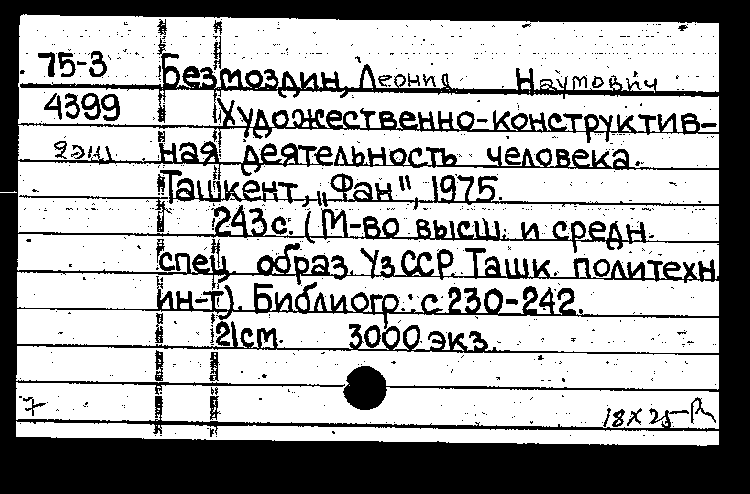 75-3 Безмоздин, Леонид Наумович
4399 Художественно-конструктив-
2 экз ная деятельность человека.
Ташкент, „Фан", 1975.
243 с. (М-во высш. и средн.
спец. образ. УзССР. Ташк. политехн.
ин-т). Библиогр.: с 230-242.
21 см. 3000 экз.
7
18 X 25